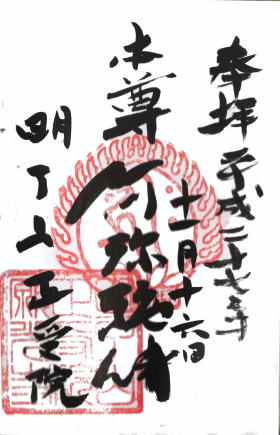 奉拝 平成二十七年
十一月十六日
本尊 阿弥陀佛
明丁山正受院